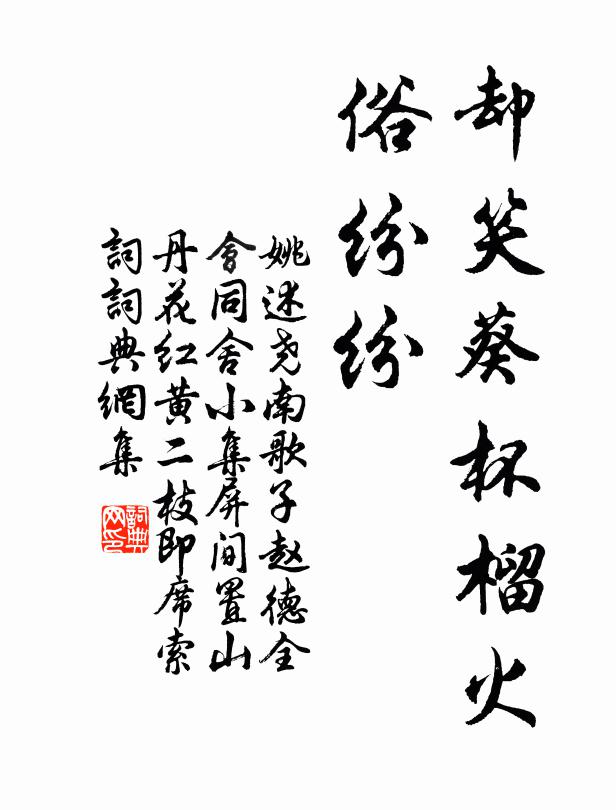 却笑葵杯榴火
俗纷纷
姚述尧南歌子赵德全
會同舍小集屏间置山
丹花红黄二枝即席索
詞詞典網集
詞典网印